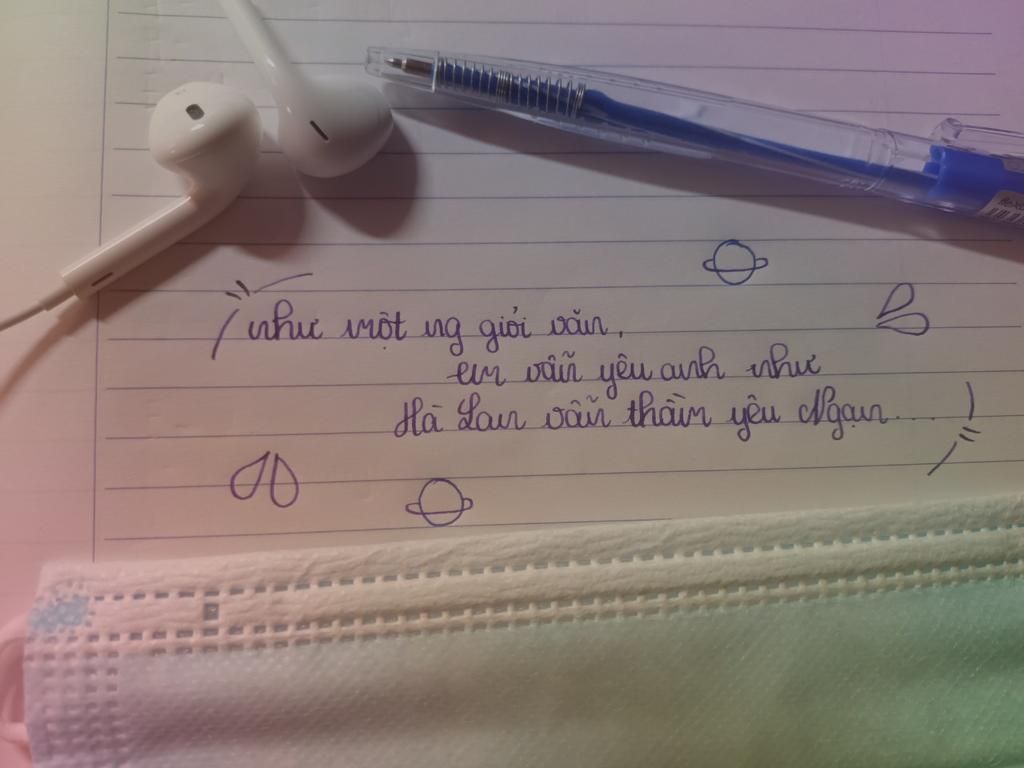 như một ng giỏi văn,
em vẫn yêu anh như
Hà Lan vẫn thầm yêu Ngạn....